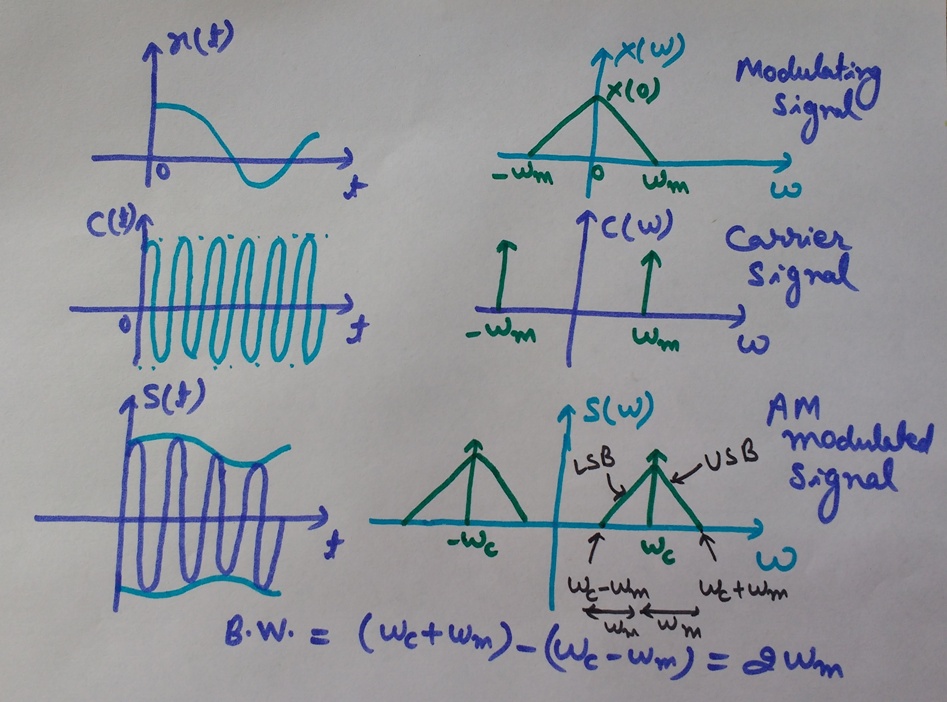 x(t)
0
t
X(ω)
X(0)
-ωm
0
ωm
ω
Modulating
Signal
C(t)
0
t
C(ω)
-ωm
ωm
ω
Carrier
Signal
S(t)
t
S(ω)
LSB
USB
-ωc
ωc
ω
ωc-ωm
ωc+ωm
ωm
ωm
AM
modulated
Signal
B.W. = (ωc+ωm)-(ωc-ωm) = 2ωm